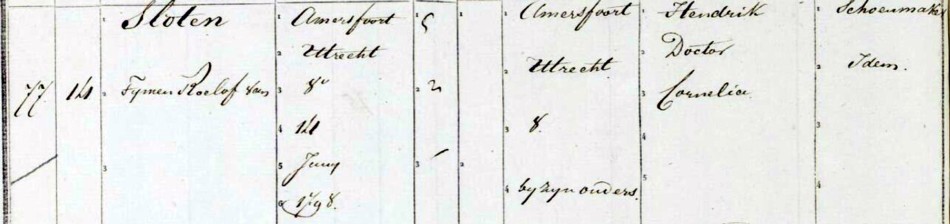 Sloten Amersfoort 5 Amersfoort Hendrik Schoenmaker
Utrecht Utrecht Doctor Idem.
77 14 Tymen Roelof van 8e 2 Cornelia
14 8.
Juny
1798. by zyn ouders.